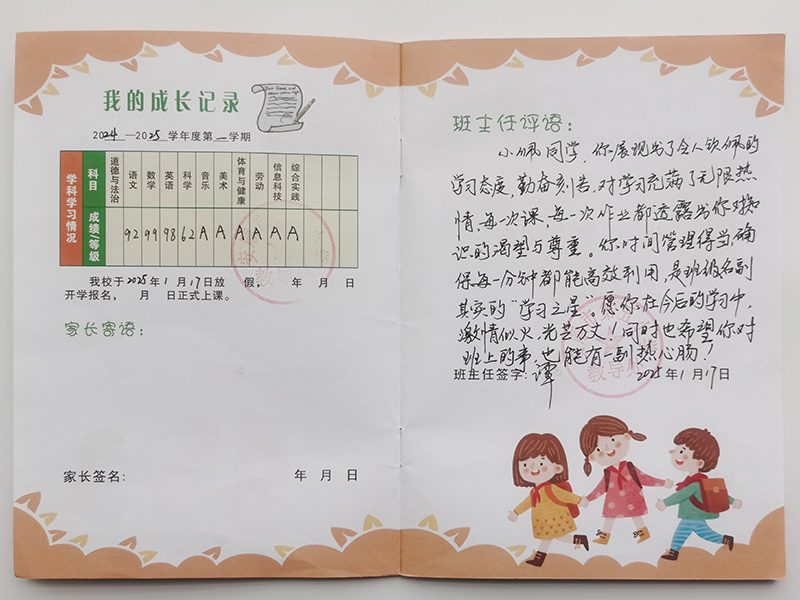 我的成长记录
2024—2025学年度第一学期
学科学习情况
科目 道德与法治 语文 数学 英语 科学 音乐 美术 体育与健康 劳动 信息科技 综合实践
成绩/等级 92 99 98 62 A A A A A A
我校于2025年1月17日放 假， 年 月 日
开学报名， 月 日正式上课。
家长寄语：
家长签名： 年 月 日
班主任评语：
小佩同学，你展现出了令人钦佩的
学习态度，勤奋刻苦，对学习充满了无限热
情，每一次课，每一次作业都透露出你对知
识的渴望与尊重。你时间管理得当，确
保每一分钟都能高效利用，是班级名副
其实的“学习之星”。愿你在今后的学习中，
激情似火，光芒万丈！同时也希望你对
班上的事，也能有一副热心肠！
班主任签字：谭 2025年1月17日